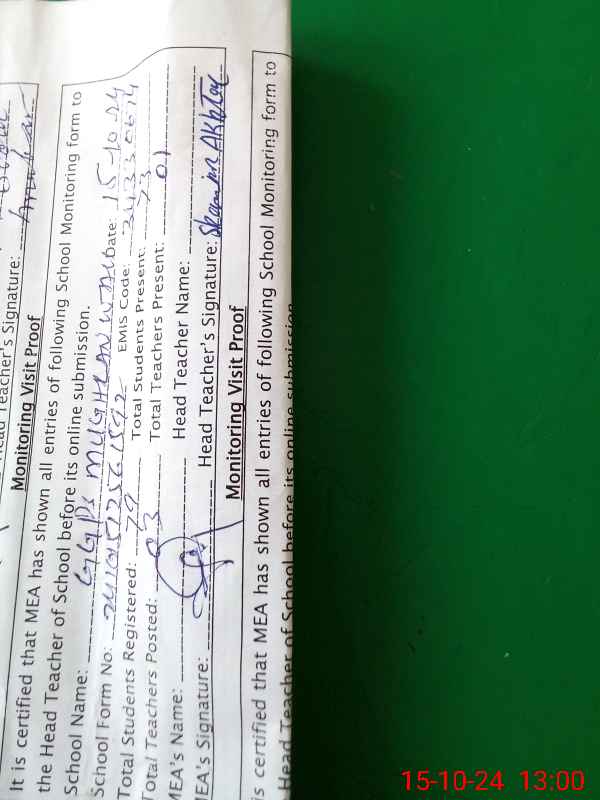 Head Teacher's Signature:
Monitoring Visit Proof
It is certified that MEA has shown all entries of following School Monitoring form to
the Head Teacher of School before its online submission.
School Name: GGPS MUGHLANWALI Date: 15-10-24
School Form No: EMIS Code:
Total Students Registered: 79 Total Students Present: 73
Total Teachers Posted: 03 Total Teachers Present: 01
MEA's Name: Head Teacher Name:
MEA's Signature: Head Teacher's Signature: Shamim AKhtar
Monitoring Visit Proof
is certified that MEA has shown all entries of following School Monitoring form to
Head Teacher of School before its online submission
15-10-24 13:00